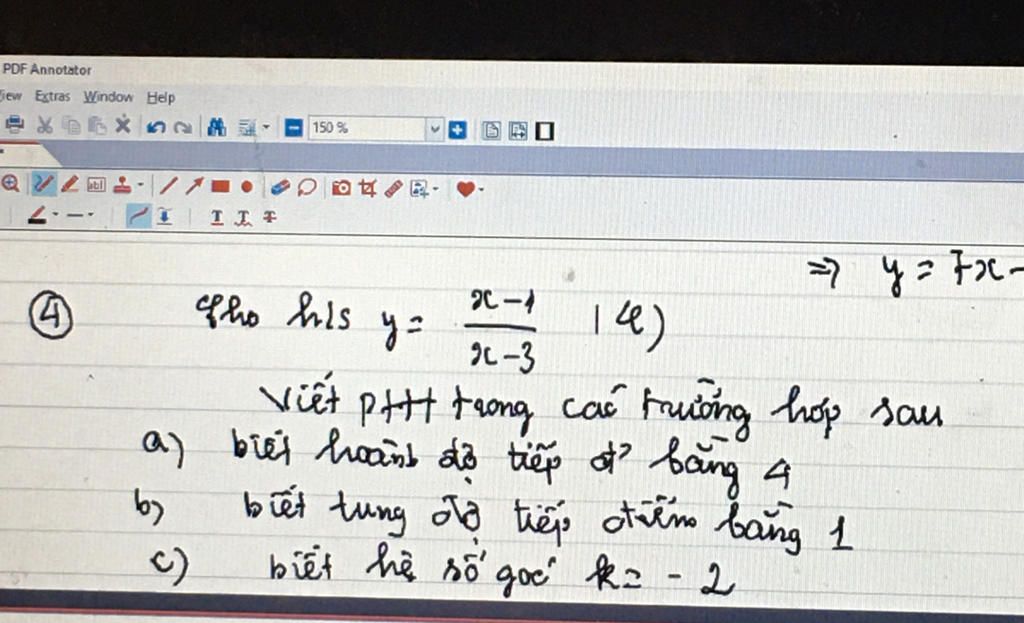 PDF Annotator
iew Extras Window Help
150 %
⇒ y = 7x -
④ Cho h/s y = \frac{x-1}{x-3} (C)
Viết pttt trong các trường hợp sau
a) biết hoành độ tiếp đ' bằng 4
b) biết tung độ tiếp điểm bằng 1
c) biết hệ số góc k = - 2